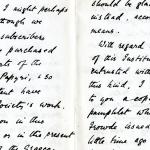 I might perhaps
though we
subscribers
purchased
rts of the
Papyri, & so
tent have
ociety's work.
on in this
or in the present
of the Graeco-
should be gla
instead, accor
means.
With regard
of this Institu
entrusted with
this kind, I
to you a copy
pamphlet whi
Frowde issued
little time ago